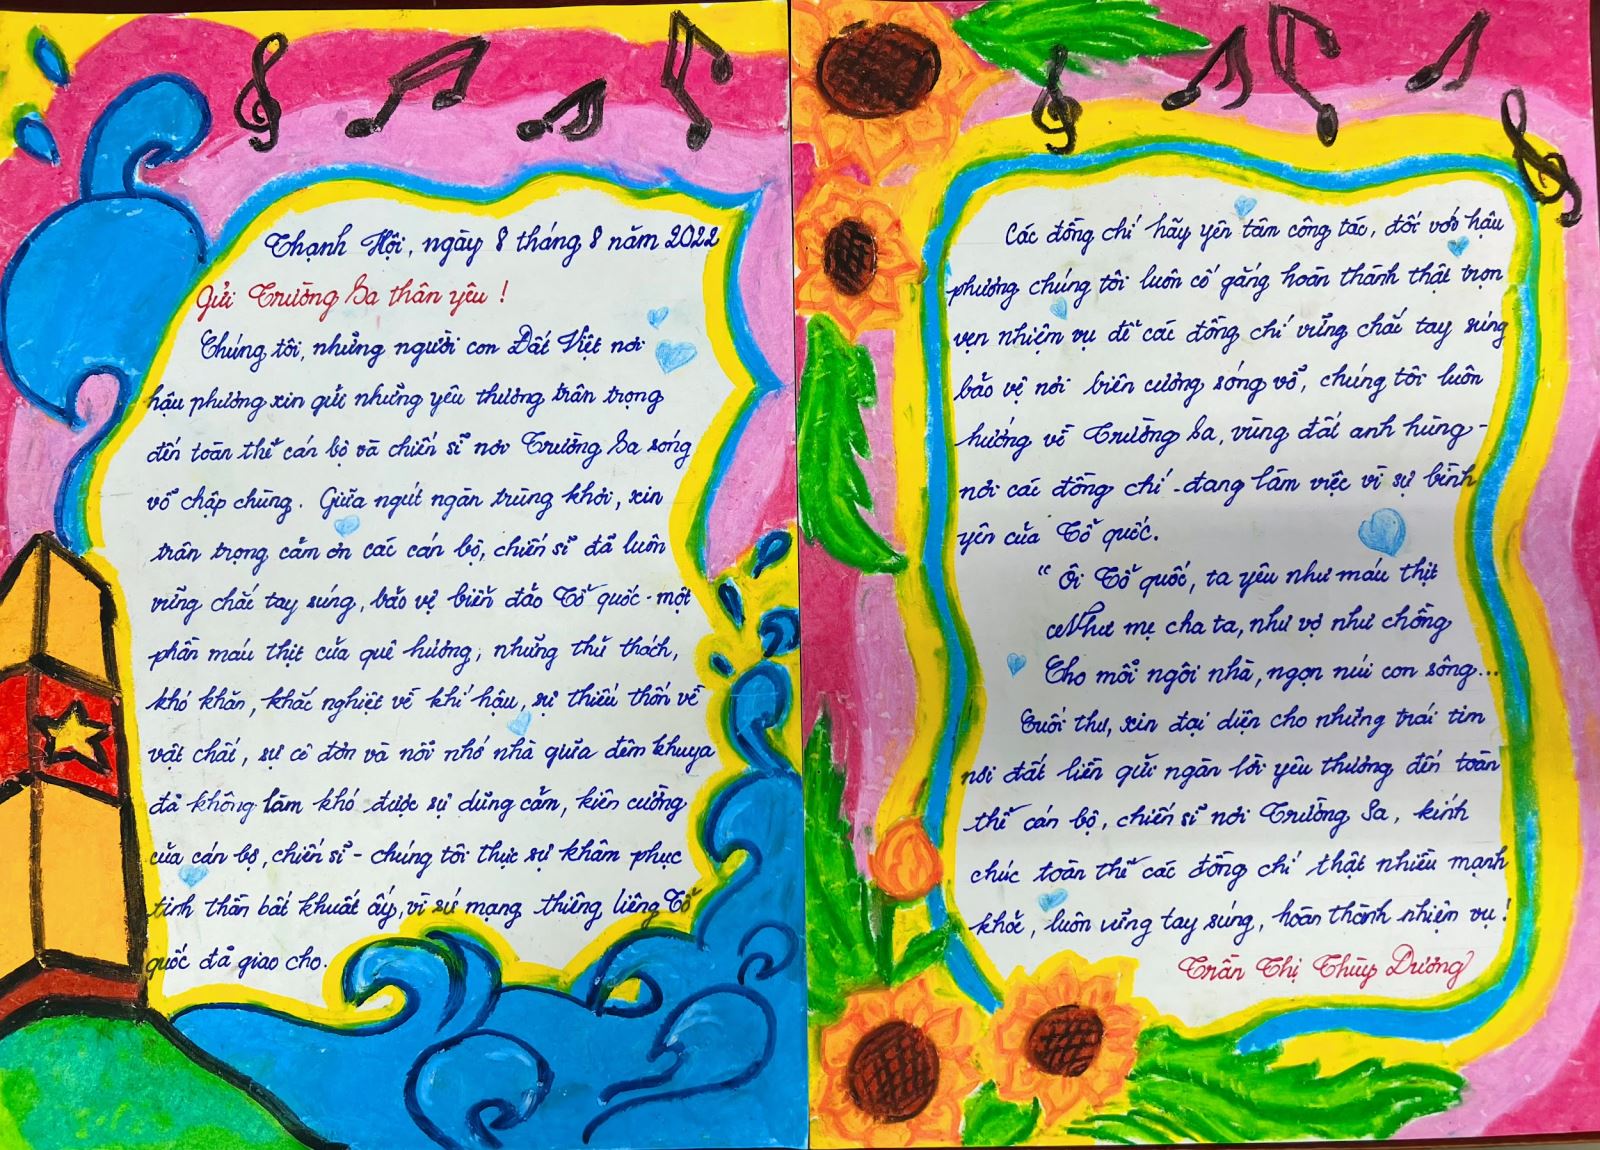 Thạnh Hội, ngày 8 tháng 8 năm 2022
Gửi Trường Sa thân yêu !
Chúng tôi, những người con Đất Việt nơi
hậu phương xin gửi những yêu thương trân trọng
đến toàn thể cán bộ và chiến sĩ nơi Trường Sa sóng
vỗ chập chùng. Giữa ngút ngàn trùng khơi, xin
trân trọng cảm ơn các cán bộ, chiến sĩ đã luôn
vững chắc tay súng, bảo vệ biển đảo Tổ quốc - một
phần máu thịt của quê hương, những thử thách,
khó khăn, khắc nghiệt về khí hậu, sự thiếu thốn về
vật chất, sự cô đơn và nỗi nhớ nhà giữa đêm khuya
đã không làm khó được sự dũng cảm, kiên cường
của cán bộ, chiến sĩ - chúng tôi thực sự khâm phục
tinh thần bất khuất ấy, vì sứ mạng thiêng liêng Tổ
quốc đã giao cho.
Các đồng chí hãy yên tâm công tác, đối với hậu
phương chúng tôi luôn cố gắng hoàn thành thật trọn
vẹn nhiệm vụ để các đồng chí vững chắc tay súng
bảo vệ nơi biên cương sóng vỗ, chúng tôi luôn
hướng về Trường Sa, vùng đất anh hùng -
nơi các đồng chí - đang làm việc vì sự bình
yên của Tổ quốc.
" Ôi Tổ quốc, ta yêu như máu thịt
Như mẹ cha ta, như vợ như chồng
Cho mỗi ngôi nhà, ngọn núi con sông...
Cuối thư, xin đại diện cho những trái tim
nơi đất liền gửi ngàn lời yêu thương đến toàn
thể cán bộ, chiến sĩ nơi Trường Sa, kính
chúc toàn thể các đồng chí thật nhiều mạnh
khỏe, luôn vững tay súng, hoàn thành nhiệm vụ !
Trần Thị Thùy Dương